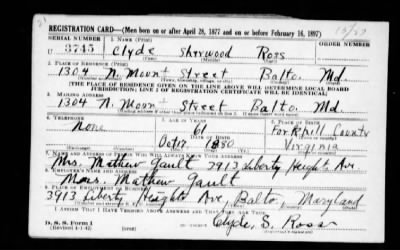 REGISTRATION CARD—(Men born on or after April 28, 1877 and on or before February 16, 1897)
SERIAL NUMBER 1. NAME (Print) ORDER NUMBER
U 3745 Clyde Sherwood Ross
(First) (Middle) (Last)
2. PLACE OF RESIDENCE (Print)
1304 N. Mount Street Balto. Md.
[THE PLACE OF RESIDENCE GIVEN ON THE LINE ABOVE WILL DETERMINE LOCAL BOARD
JURISDICTION; LINE 2 OF REGISTRATION CERTIFICATE WILL BE IDENTICAL]
3. MAILING ADDRESS
1304 N. Mount Street Balto. Md
4. TELEPHONE 5. AGE IN YEARS 6. PLACE OF BIRTH
None 61
DATE OF BIRTH County
Oct 17. 1880 Virginia
7. NAME AND ADDRESS OF PERSON WHO WILL ALWAYS KNOW YOUR ADDRESS
Mrs. Mathew Gault 3913 Liberty Heights Ave.
8. EMPLOYER'S NAME AND ADDRESS
Mrs. Mathew Gault
9. PLACE OF EMPLOYMENT OR BUSINESS
3913 Liberty Heights Ave, Balto, Maryland
I AFFIRM THAT I HAVE VERIFIED ABOVE ANSWERS AND THAT THEY ARE TRUE.
D. S. S. Form 1
(Revised 4-1-42) Clyde S. Ross